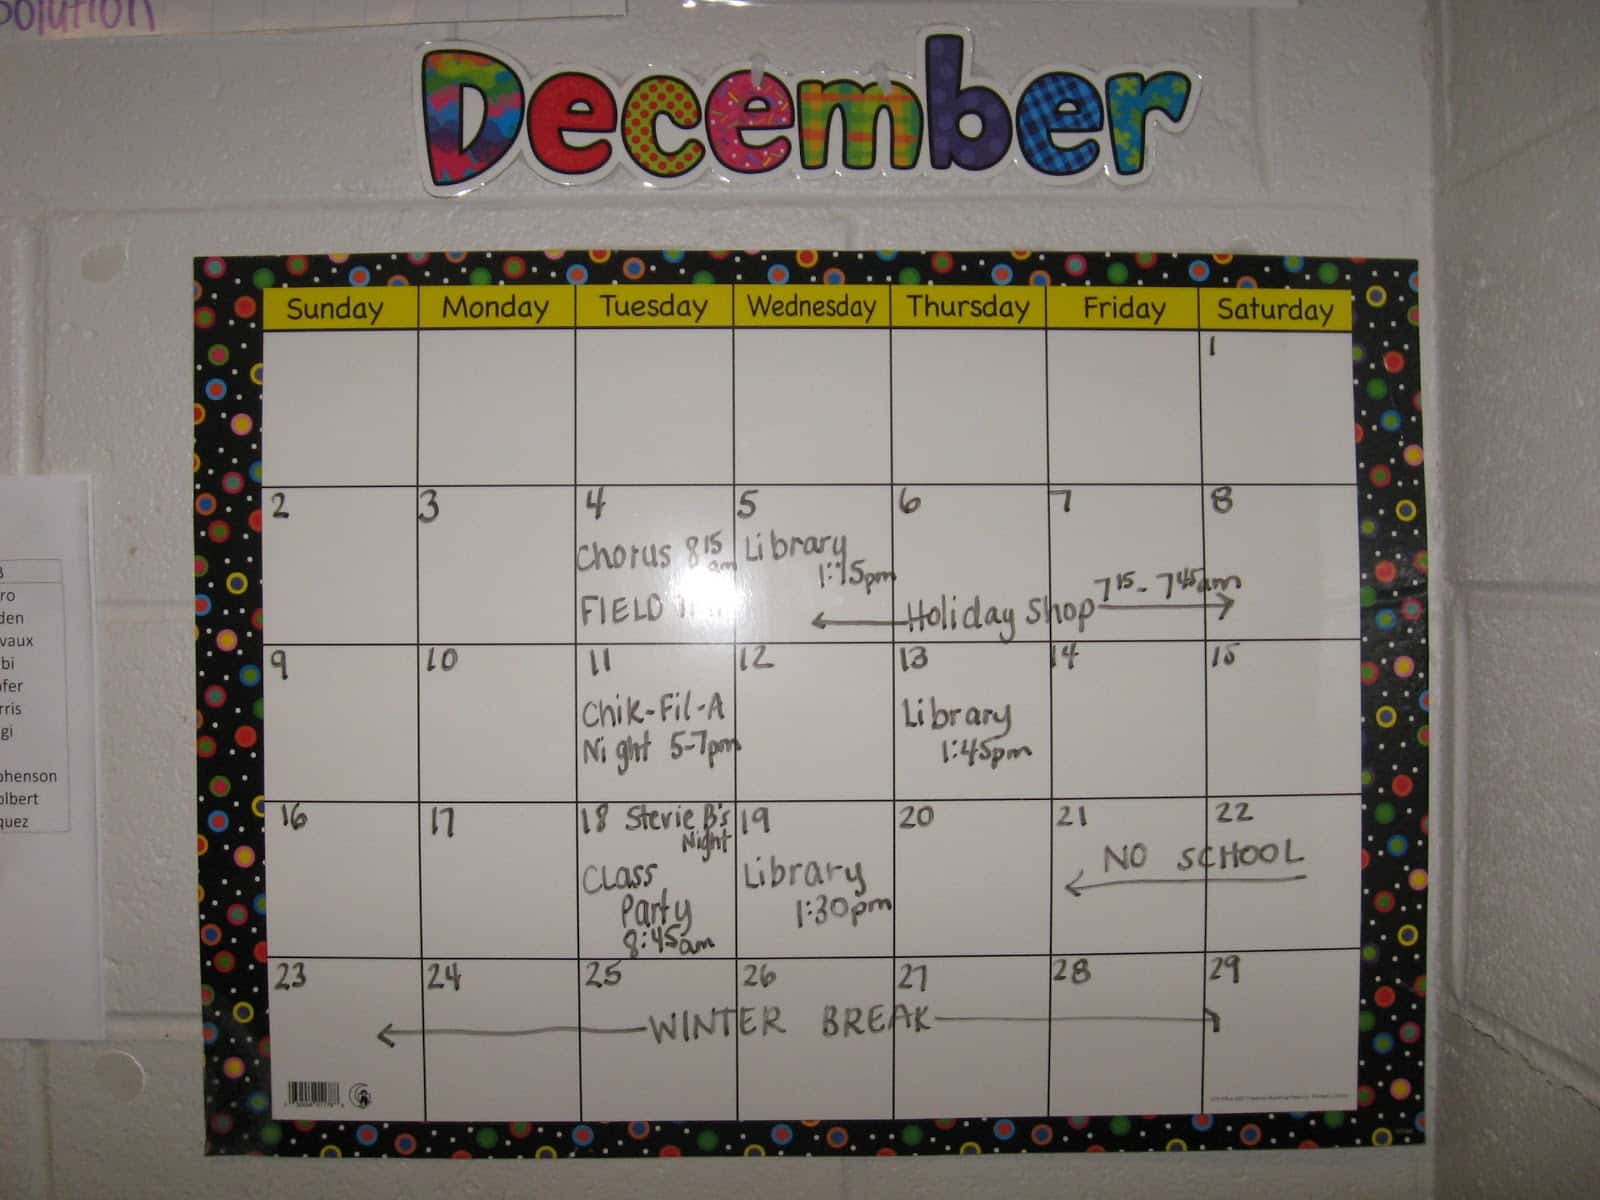 Solution
December
Sunday Monday Tuesday Wednesday Thursday Friday Saturday
1
2 3 4 5 6 7 8
Chorus 8 15 am
FIELD
Library
1:15pm
Holiday Shop 7 15 - 7 45 am
9 10 11 12 13 14 15
Chik-Fil-A
Night 5-7pm
Library
1:45pm
16 17 18 Stevie B's 19 20 21 22
Night
Class
Party
8:45am
Library
1:30pm
NO SCHOOL
23 24 25 26 27 28 29
WINTER BREAK